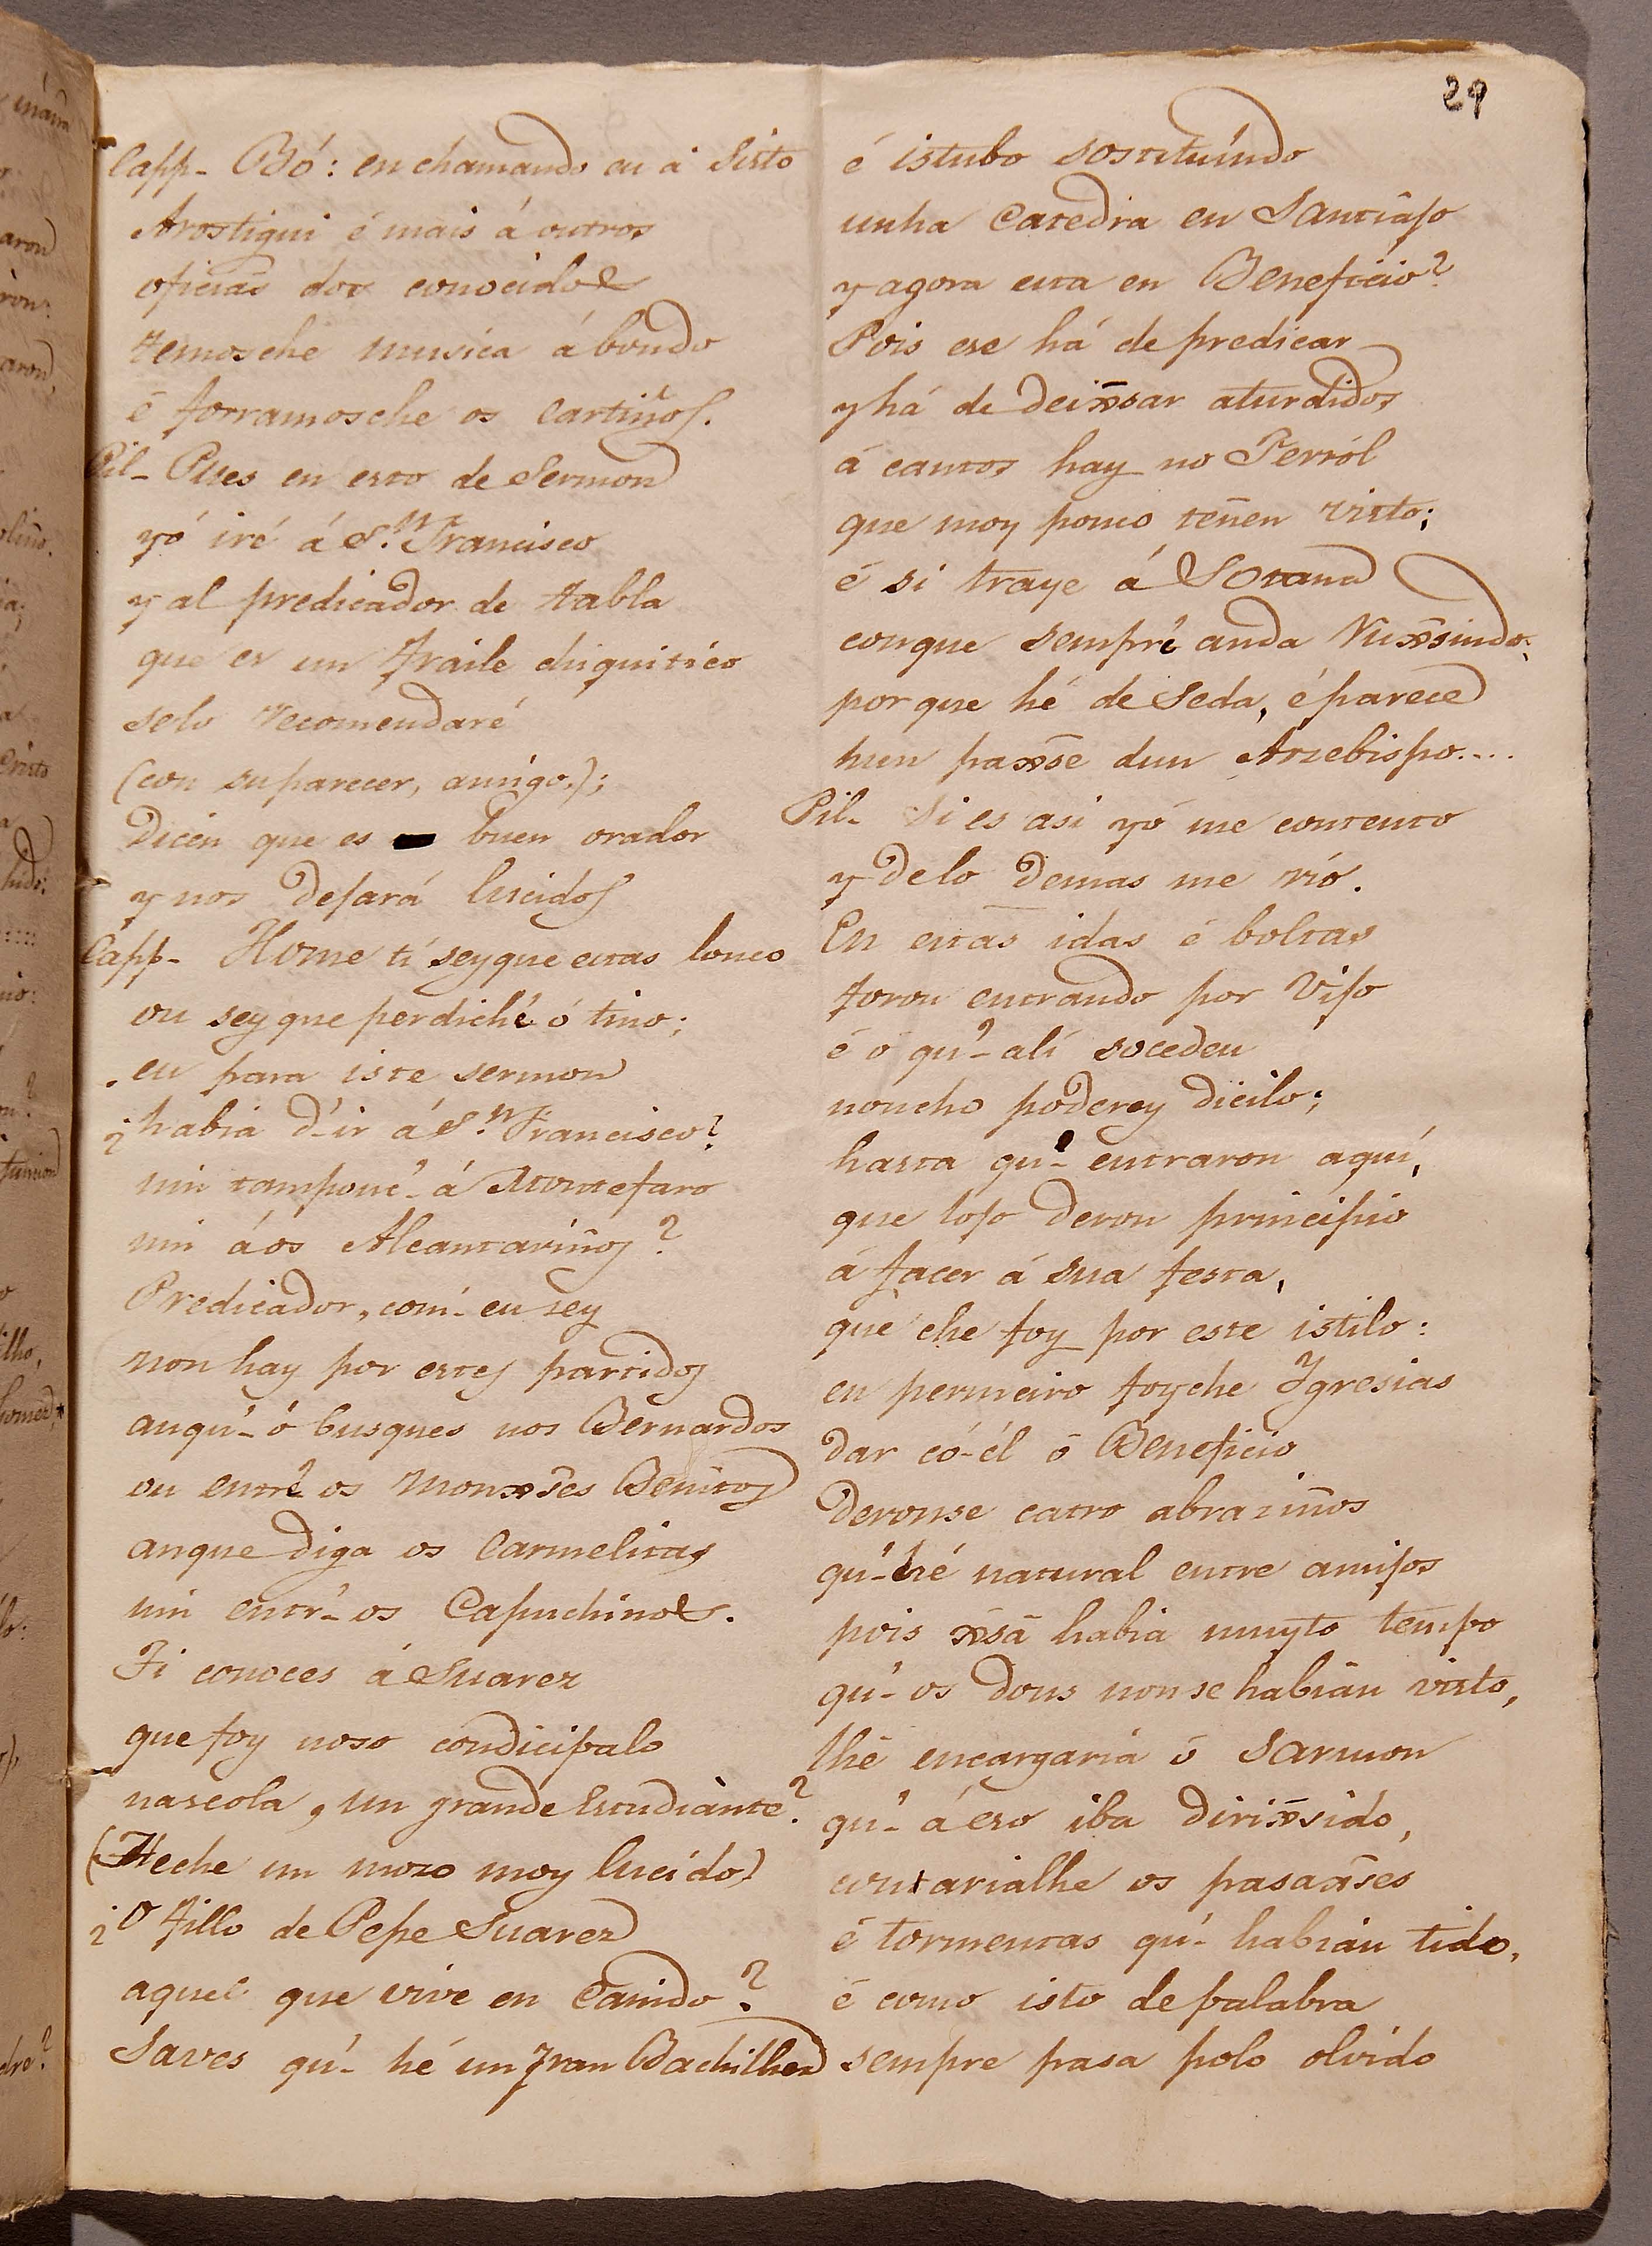 29
Capp- Bó: en chamando eu á Sisto
Arostigui é mais á outros
oficiás dos conocidos
temosche musica ábondo
é forramosche os Cartiños.
Pil- Pues en esto de Sermon
yó iré á S.n Francisco
y al predicador de tabla
que es un fraile chiquitico
selo recomendaré
(con su parecer, amigo.);
Dicen que es buen orador
y nos dejará lucidos
Capp- Home tí seyque estas louco
ou seyque perdiché ó tino;
eu para iste sermon
¿habia d'-ir á S.n Francisco?
nin tampouc'- á Montefaro
nin áos Alcantariños?
Predicador, com'- eu sey
non hay por estes partidos
auqu'- ó busques nos Bernardos
ou entre os Monxses Benitos
anque diga os Carmelitas
nin entr'- os Capuchinos.
Ti conoces á Suarez
que foy noso condicipalo
nascola, un grande Estudiante?
(Heche un mozo moy lucido)
¿O fillo de Pepe Suarez
aquel que vive en Canido?
Saves qu'- hé un gran Bachilher
é istubo sostituíndo
unha Catedra en Santiago
y agora esta en Beneficio?
Pois ese há de predicar
y há de deixsar aturdidos
á cantos hay no Ferról
que moy pouco teñen visto;
é si traye á Sotana
conque sempre anda ruxsindo;
por que hé de Seda, é parece
hun paxse dun Arzebispo....
Pil- Si es asi yó me contento
y de lo demas me rió.
En estas idas é boltas
foron entrando por Vijo
é o qu'- alí socedeu
noncho poderey dicilo;
hasta qu'- entraron aquí,
que lojo deron principio
á facer á sua festa,
que che foy por este istilo:
en permeiro foyche Ygresias
dar có-él ó Beneficio
deronse catro abraziños
qu'-hé natural entre amijos
pois xsá habia muyto tempo
qu'- os dous non se habian visto,
lhe encargaria ó Sarmon
qu'- á eso iba dirixsido,
contarialhe os pasaxses
é tormentas qu'- habian tido,
é como isto de palabra
sempre pasa polo olvido